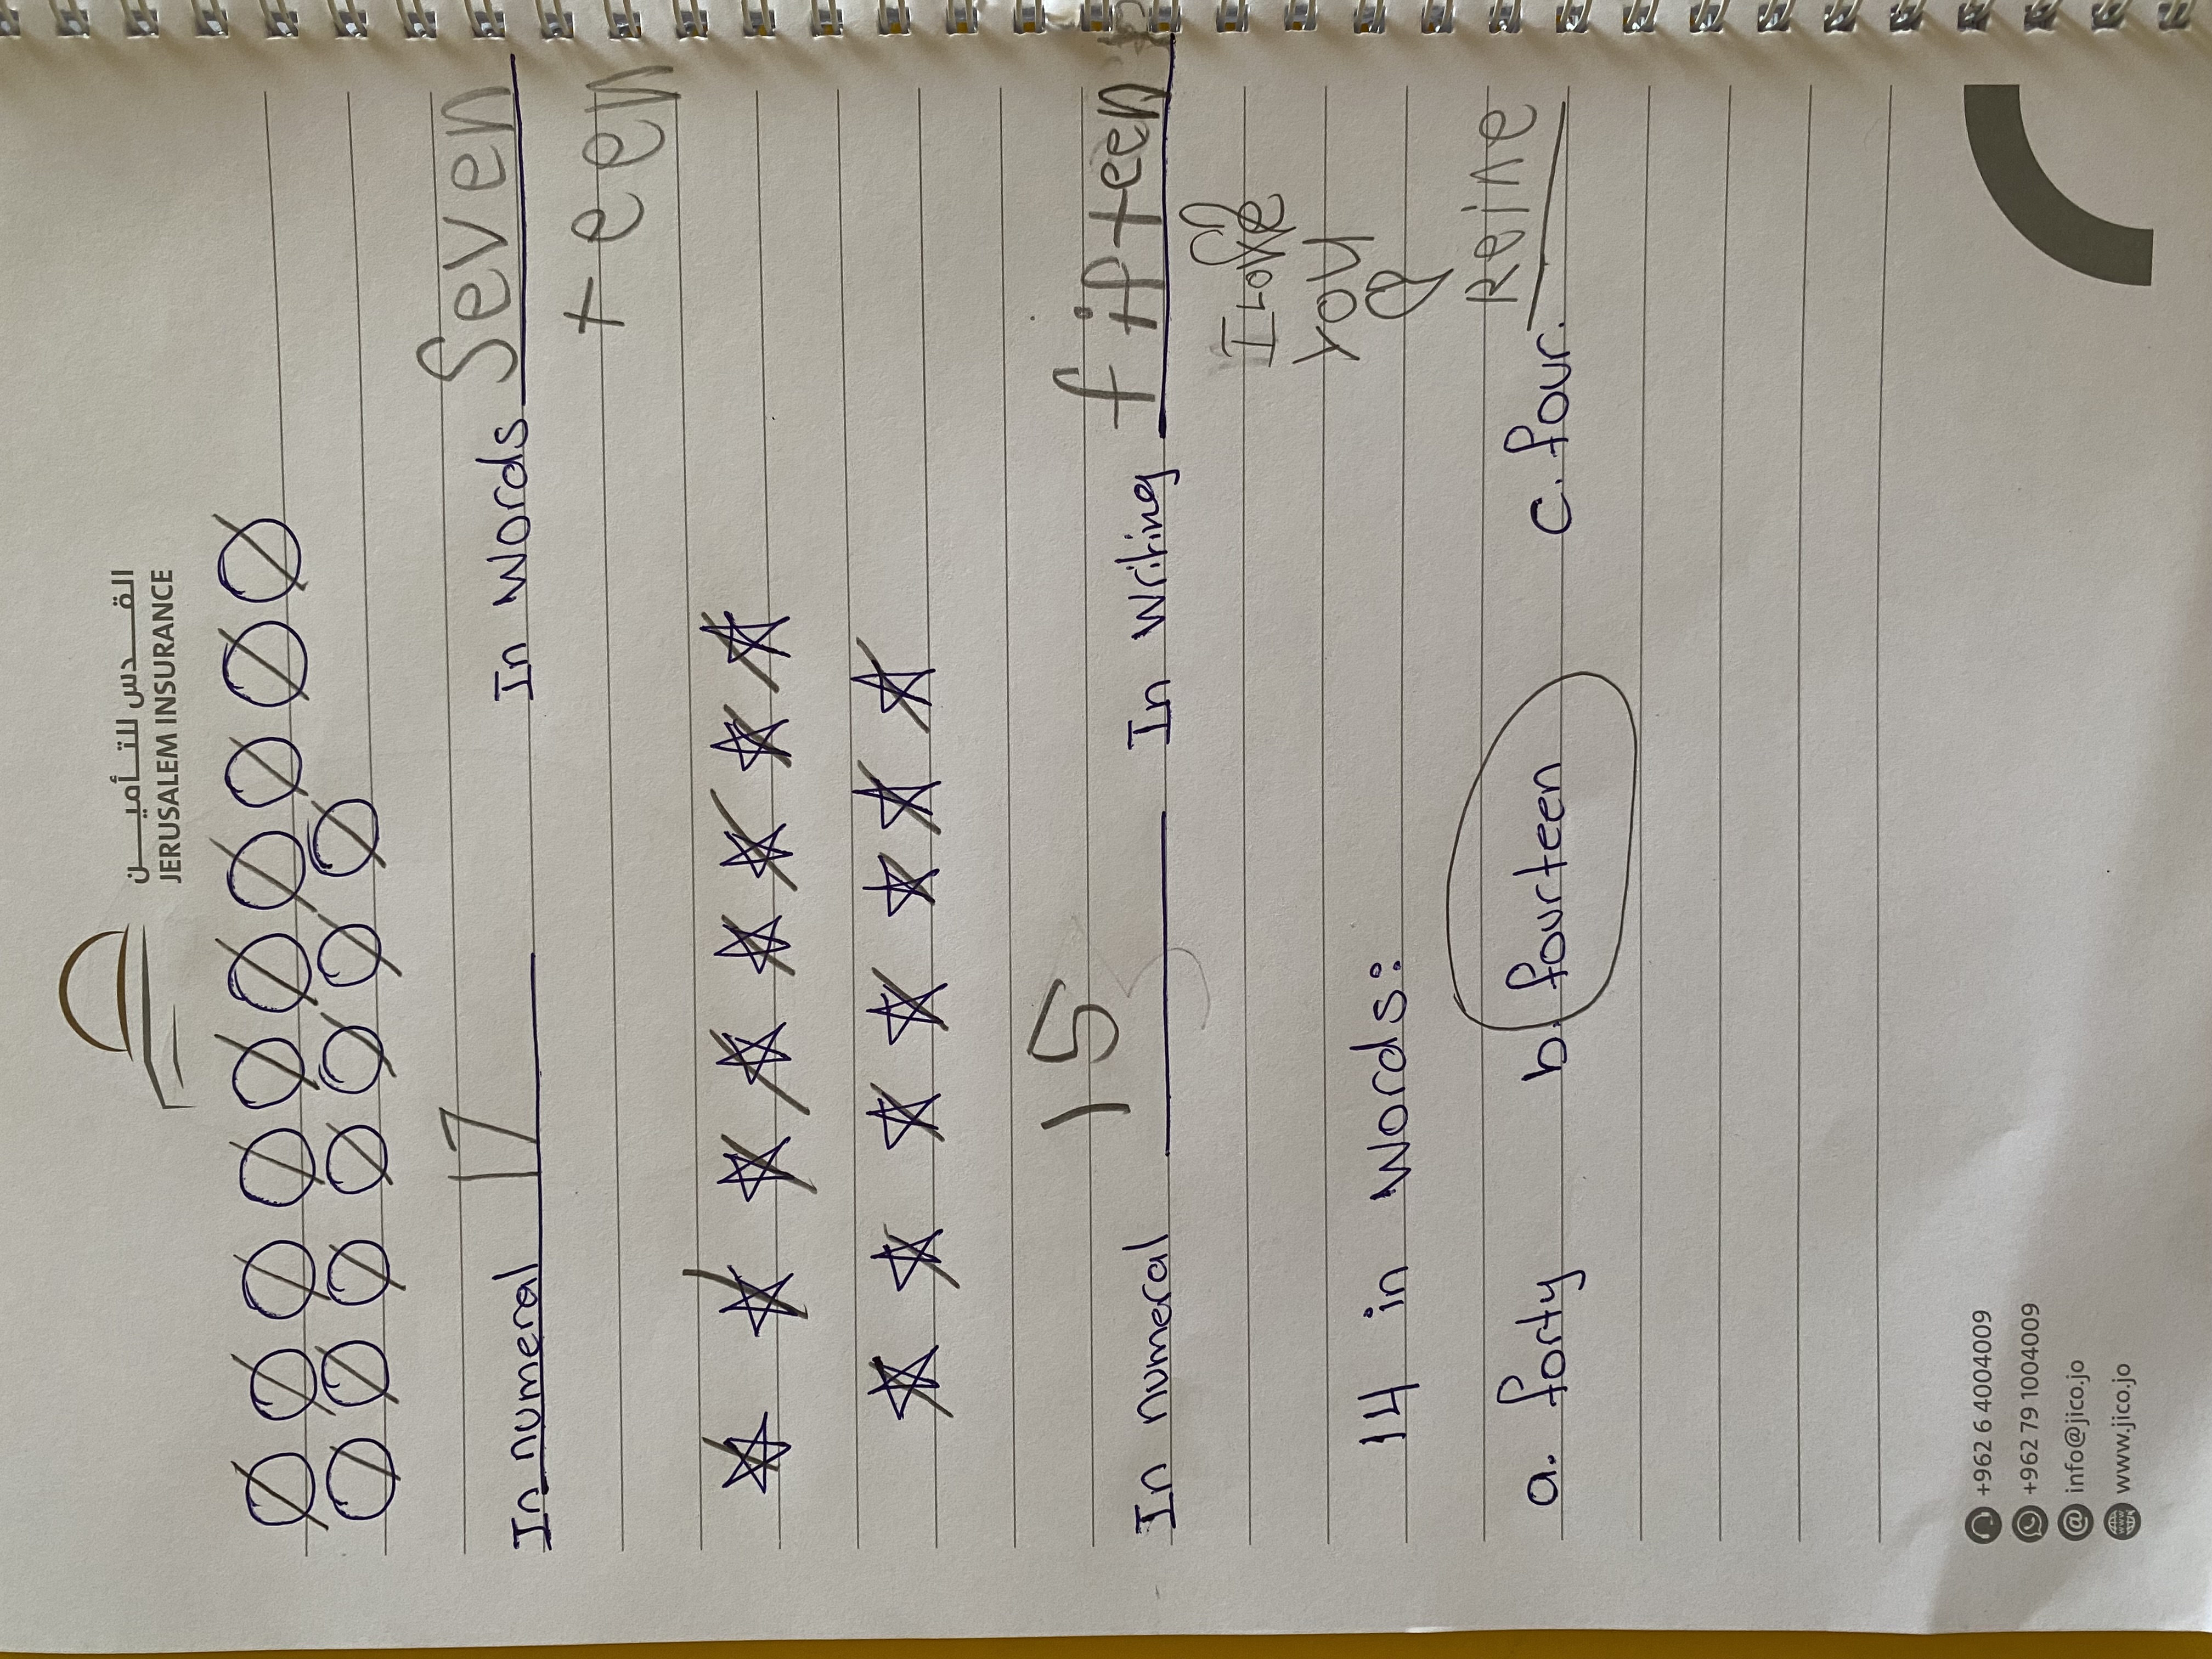 القدس للتأمين
JERUSALEM INSURANCE
In numeral 17 In words Seven
teen
In numeral 15 In writing fifteen
I Love
you
14 in words:
Reine
a. forty b. fourteen c. four.
+962 6 4004009
+962 79 1004009
info@jico.jo
www.jico.jo